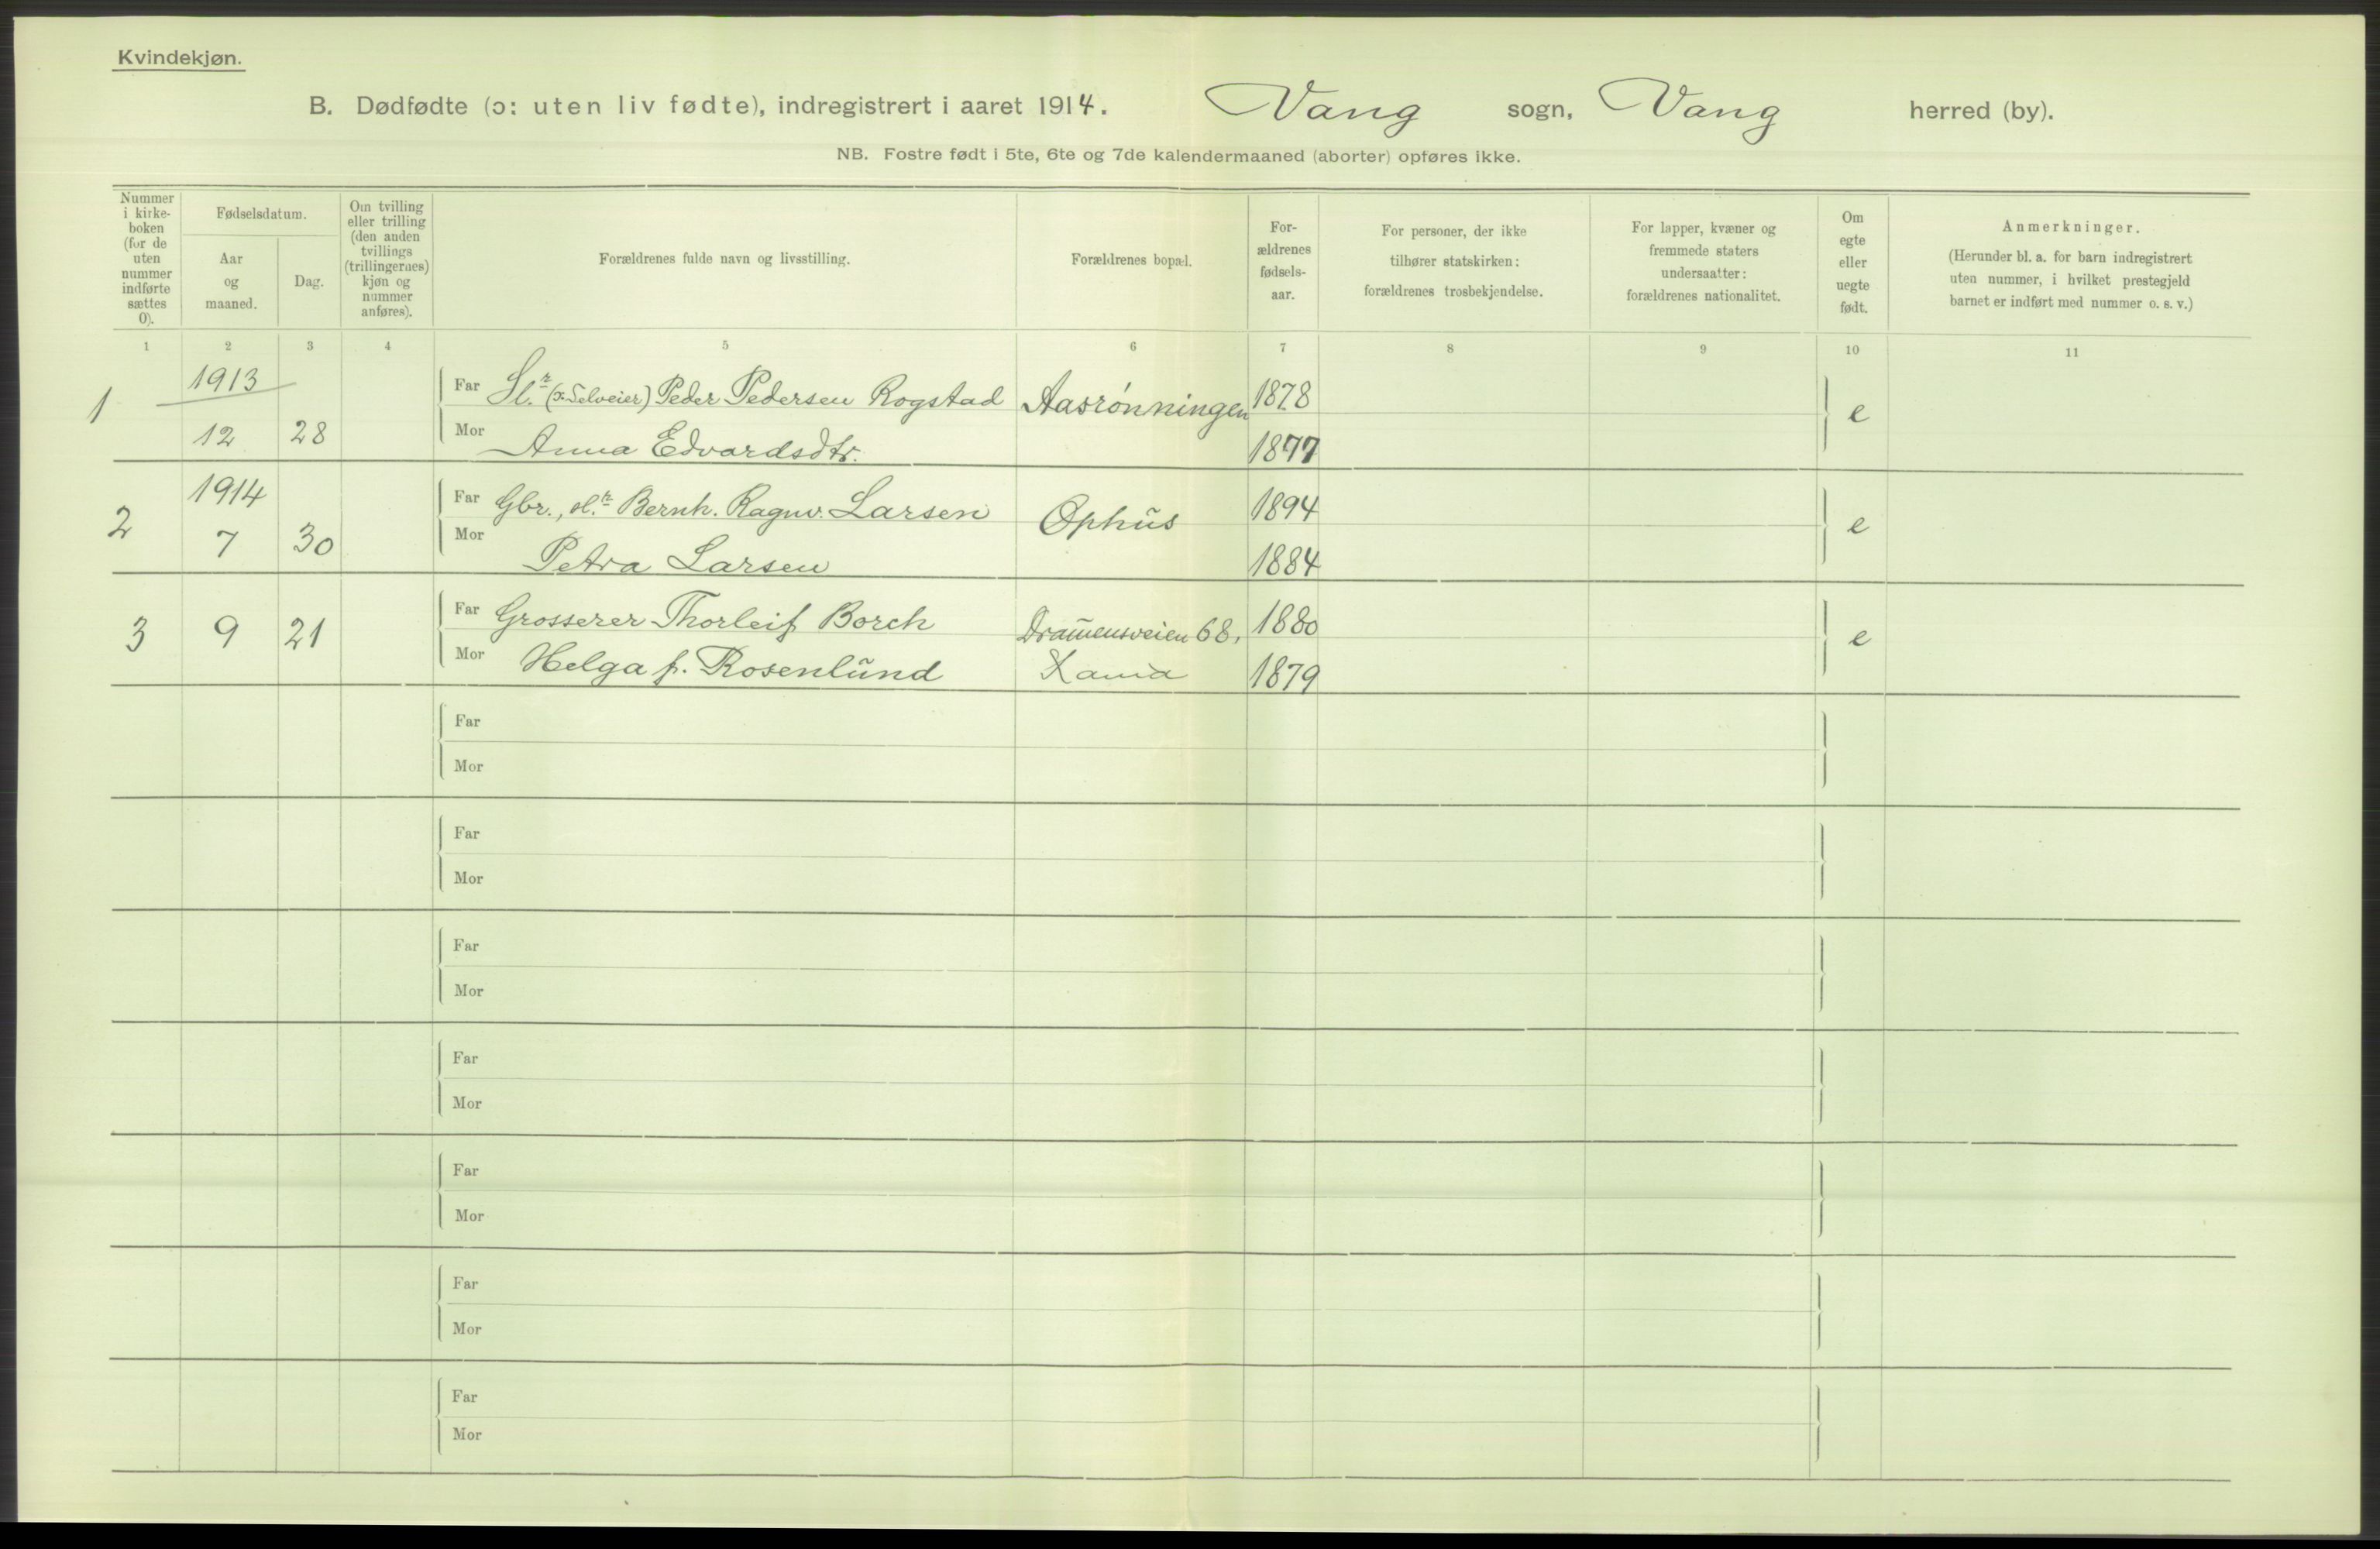 Kvindekjøn.
B. Dødfødte (ɔ: uten liv fødte), indregistrert i aaret 1914. Vang sogn, Vang herred (by).
NB. Fostre født i 5te, 6te og 7de kalendermaaned (aborter) opføres ikke.
Nummer i kirke-boken (for de uten nummer indførte sættes 0).
Fødselsdatum.
Aar og maaned.
Dag.
Om tvilling eller trilling (den anden tvillings (trillingernes) kjøn og nummer anføres).
Forældrenes fulde navn og livsstilling.
Forældrenes bopæl.
For-ældrenes fødsels-aar.
For personer, der ikke tilhører statskirken: forældrenes trosbekjendelse.
For lapper, kvæner og fremmede staters undersaatter: forældrenes nationalitet.
Om egte eller uegte født.
Anmerkninger.
(Herunder bl. a. for barn indregistrert uten nummer, i hvilket prestegjeld barnet er indført med nummer o. s. v.)
1 2 3 4 5 6 7 8 9 10 11
1 1913 Far Sl.r (ɔ: Selveier) Peder Pedersen Rogstad Aasrønningen 1878 e
12 28 Mor Anna Edvardsdtr. 1877
2 1914 Far Gbr., sl.r Bernh. Ragnv. Larsen Ophus 1894 e
7 30 Mor Petra Larsen 1884
3 9 21 Far Grosserer Thorleif Borch Drammensveien 68, 1880 e
Mor Helga f. Rosenlund Xania 1879
Far
Mor
Far
Mor
Far
Mor
Far
Mor
Far
Mor
Far
Mor
Far
Mor